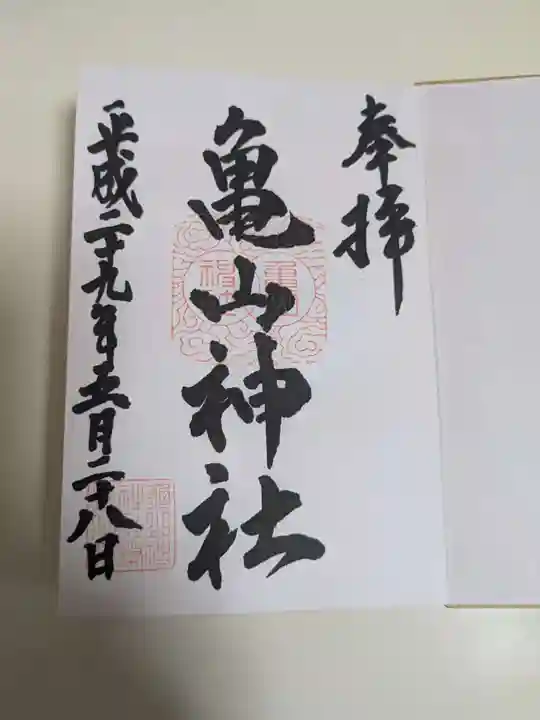 奉拝
亀山神社
平成二十九年五月二十八日